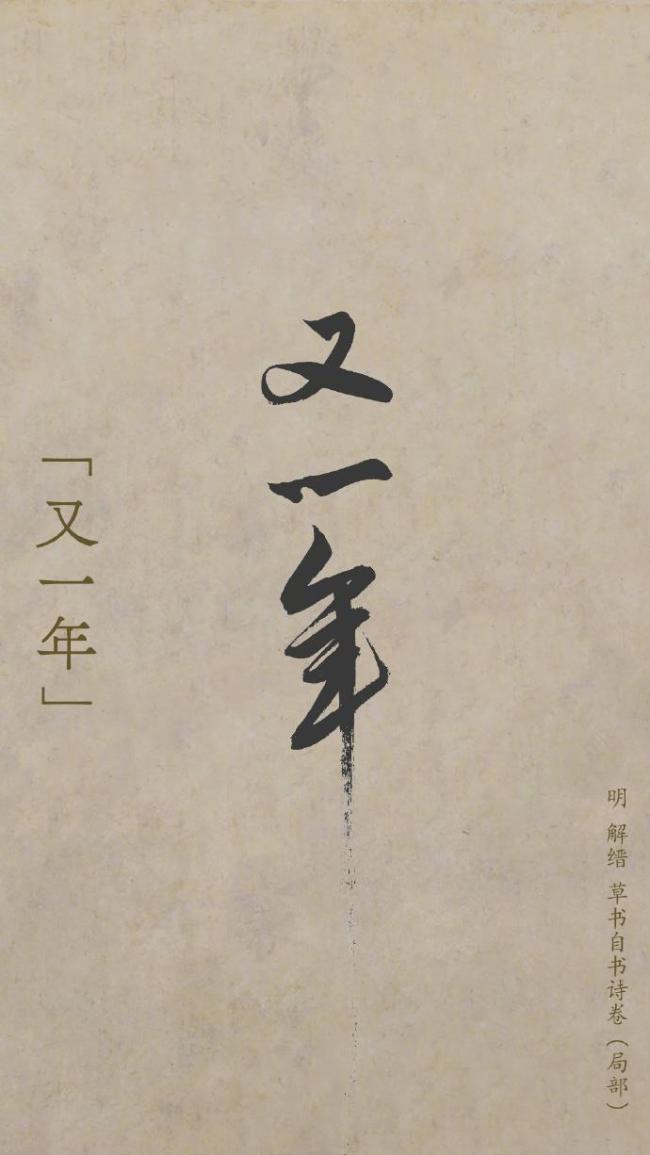 又一年
「又一年」
明 解缙 草书自书诗卷（局部）